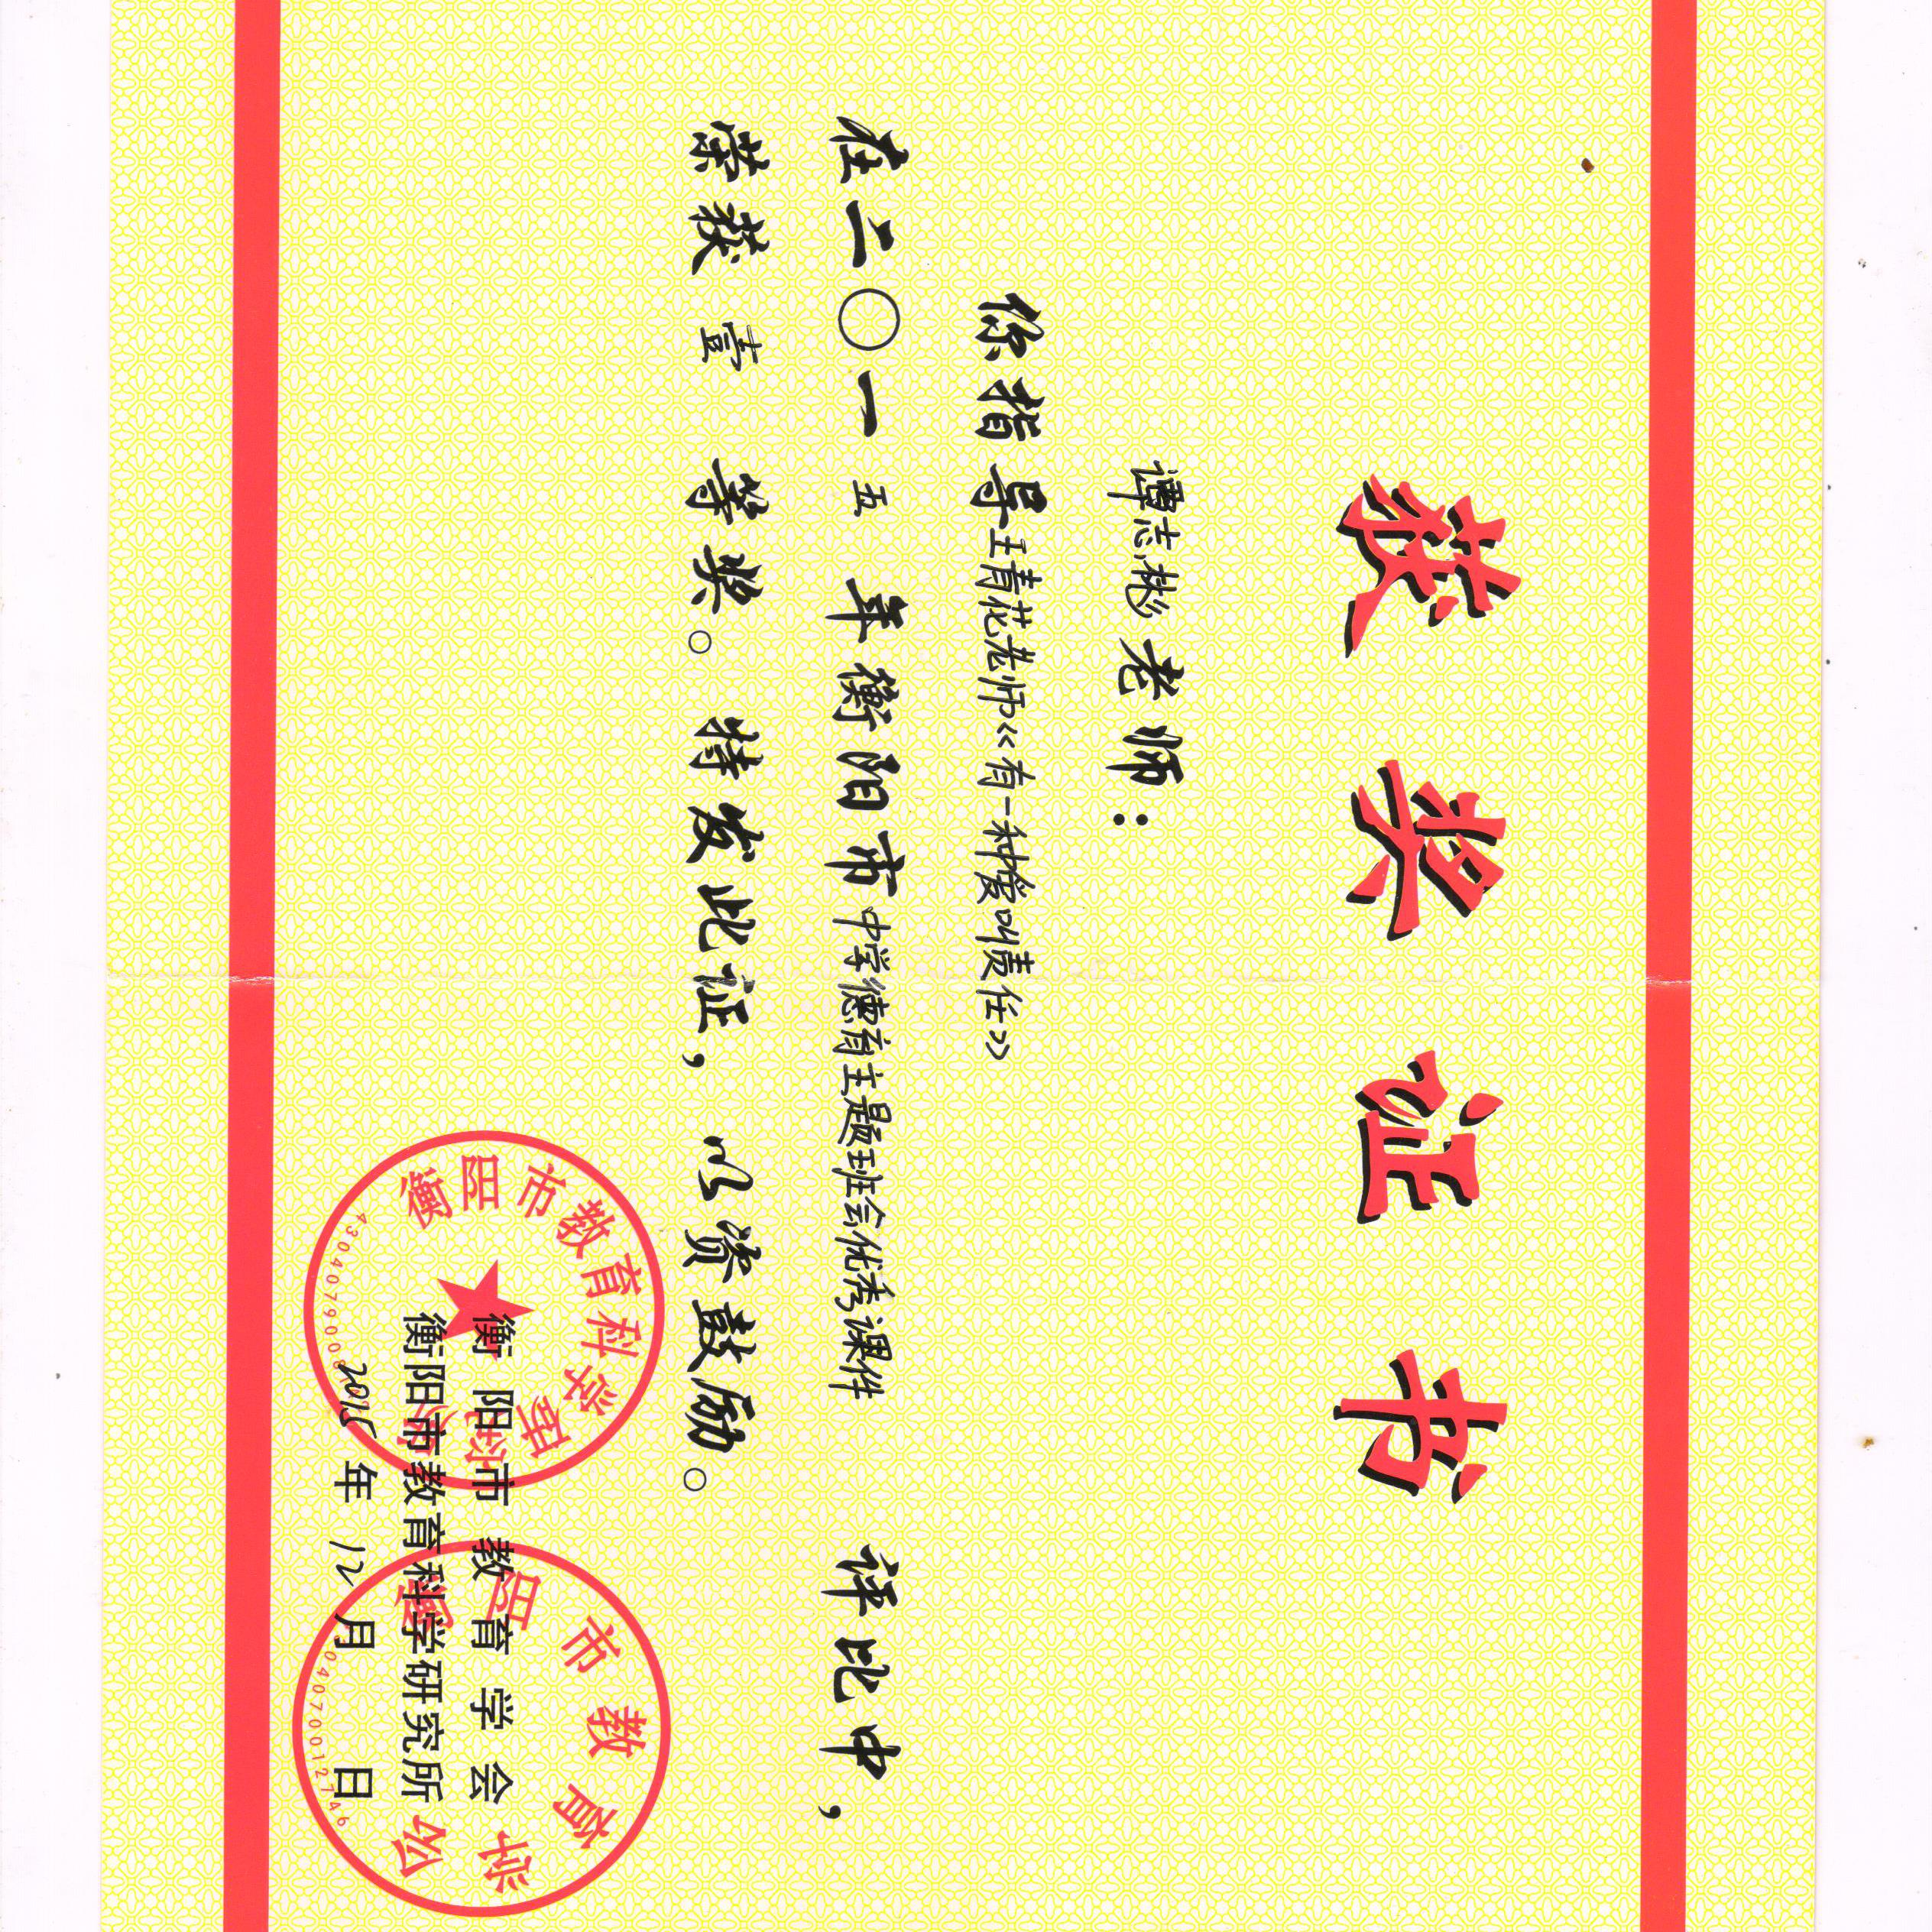 获奖证书
谭志彬老师：
你指导王青花老师《有一种爱叫责任》
在二〇一五年衡阳市中学德育主题班会优秀课件评比中，
荣获壹等奖。特发此证，以资鼓励。
衡阳市教育学会
衡阳市教育科学研究所
2015年12月 日
衡阳市教育科学研究所
衡阳市教育学会